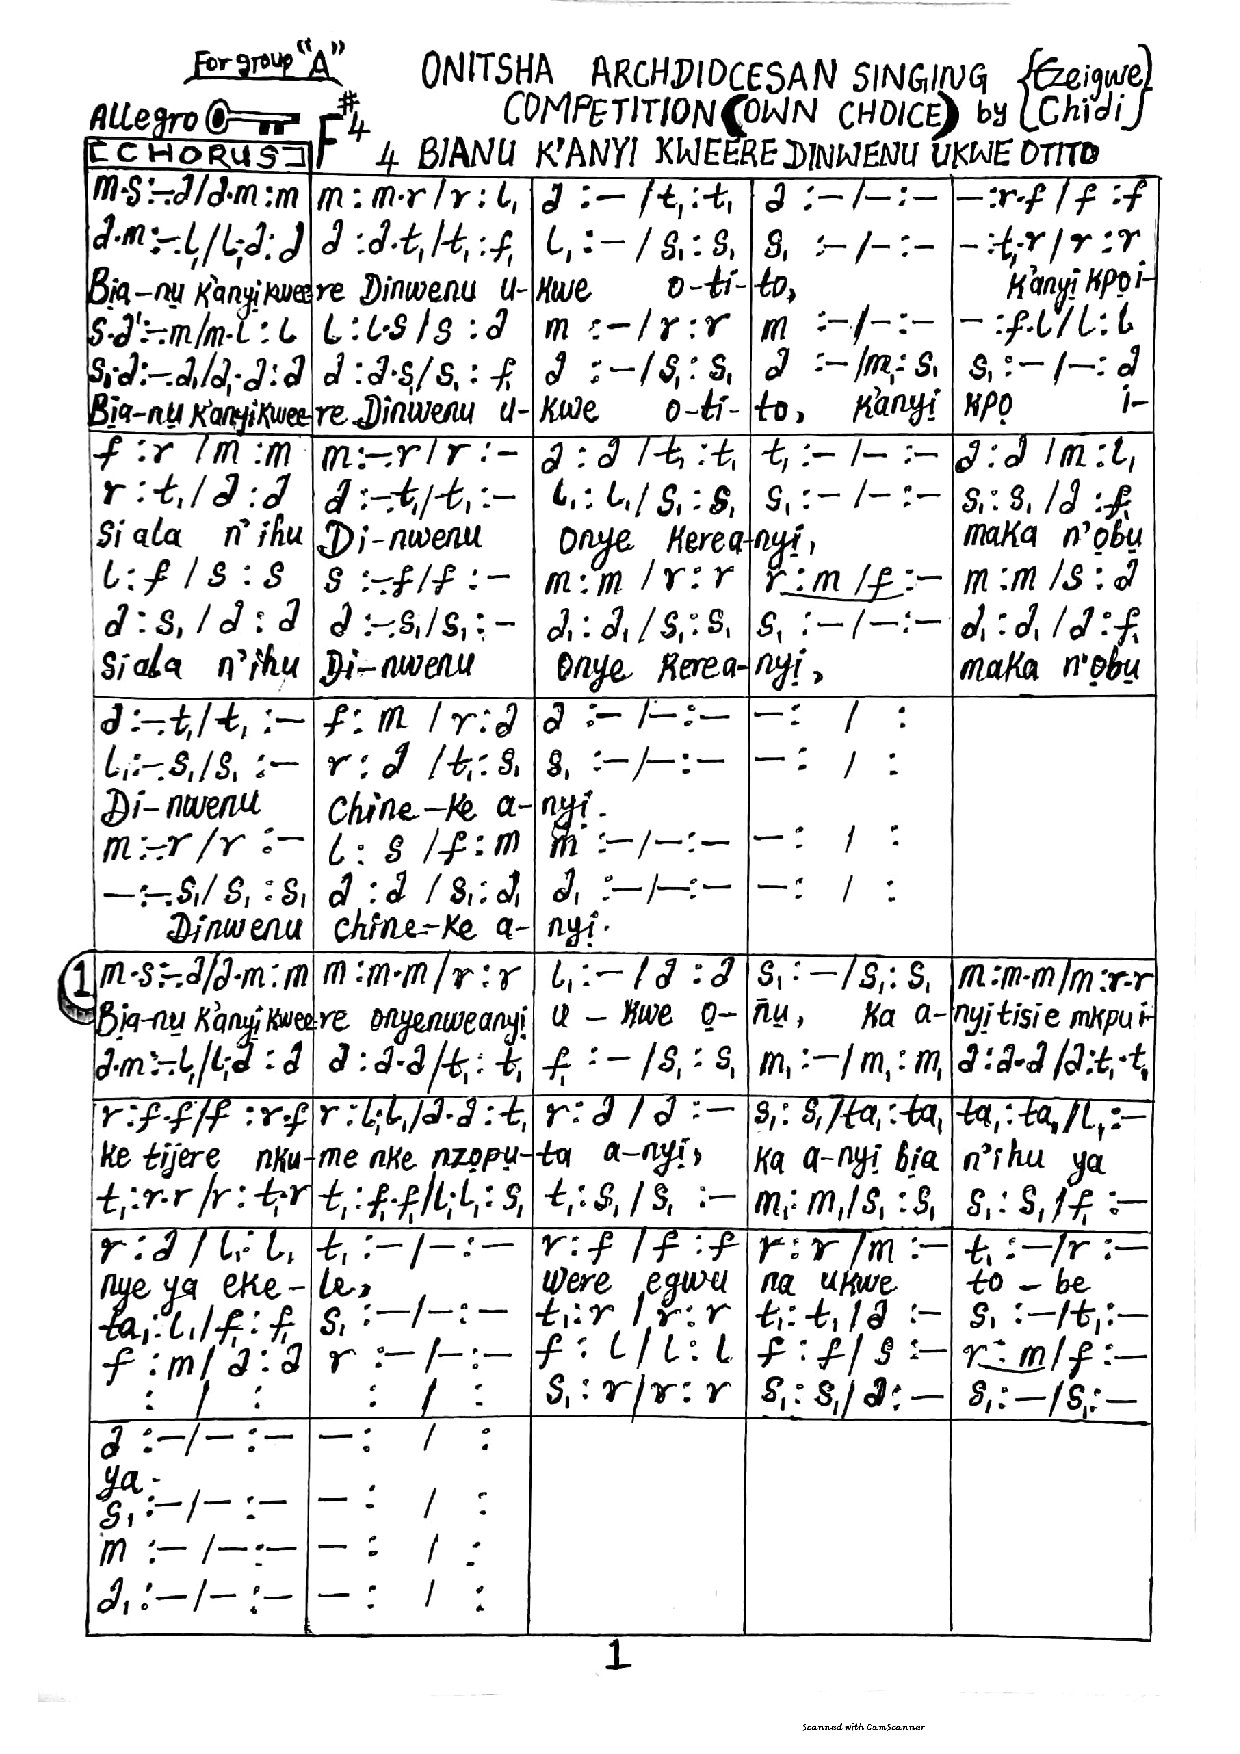 For group "A"
ONITSHA ARCHDIOCESAN SINGING {Ezeigwe}
COMPETITION (OWN CHOICE) by {Chidi}
Allegro F# 4
[CHORUS] 4 BIANU K'ANYI KWEERE DINWENU UKWE OTITO
m.s:-.d/d.m:m | m:m.r/r:l₁ | d:-/t₁:t₁ | d:-/-:- | -:r.f/f:f
d.m:-.l₁/l₁.d:d | d:d.t₁/t₁:f₁ | l₁:-/s₁:s₁ | s₁:-/-:- | -:t₁.r/r:r
Bịa-nụ K'anyị kwee re Dinwenu u- kwe o-ti- to, K'anyị kpọ i-
s.d':-.m/m.l:l | l:l.s/s:d | m:-/r:r | m:-/-:- | -:f.l/l:l
s₁.d:-.d₁/d₁.d:d | d:d.s₁/s₁:f₁ | d:-/s₁:s₁ | d:-/m₁:s₁ | s₁:-/-:d
Bịa-nụ K'anyị Kwee-re Dinwenu u- kwe o-ti- to, K'anyị kpọ i-
f:r/m:m | m:-.r/r:- | d:d/t₁:t₁ | t₁:-/-:- | d:d/m:l₁
r:t₁/d:d | d:-.t₁/t₁:- | l₁:l₁/s₁:s₁ | s₁:-/-:- | s₁:s₁/d:f₁
si ala n'ihu Di-nwenu Onye Kerea-nyị, maka n'ọbụ
l:f/s:s | s:-.f/f:- | m:m/r:r | r:m/f:- | m:m/s:d
d:s₁/d:d | d:-.s₁/s₁:- | d₁:d₁/s₁:s₁ | s₁:-/-:- | d₁:d₁/d:f₁
si ala n'ihu Di-nwenu Onye Kerea-nyị, maka n'ọbụ
d:-.t₁/t₁:- | f:m/r:d | d:-/-:- | -: / :
l₁:-.s₁/s₁:- | r:d/t₁:s₁ | s₁:-/-:- | -: / :
Di-nwenu Chine-ke a-nyị.
m:-.r/r:- | l:s/f:m | m:-/-:- | -: / :
-:-.s₁/s₁:s₁ | d:d/s₁:d₁ | d₁:-/-:- | -: / :
Dinwenu chine-ke a- nyị.
1 m.s:-.d/d.m:m | m:m.m/r:r | l₁:-/d:d | s₁:-/s₁:s₁ | m:m.m/m:r.r
Bịa-nụ K'anyị kwee-re onyenweanyị u-kwe ọ- ñụ, ka a-nyị tisie mkpu i-
d.m:-.l₁/l₁.d:d | d:d.d/t₁:t₁ | f₁:-/s₁:s₁ | m₁:-/m₁:m₁ | d:d.d/d:t₁.t₁
r:f.f/f:r.f | r:l₁.l₁/d.d:t₁ | r:d/d:- | s₁:s₁/ta₁:ta₁ | ta₁:ta₁/l₁:-
ke tijere nku-me nke nzọpụ-ta a-nyị, ka a-nyị bịa n'ihu ya
t₁:r.r/r:t₁.r | t₁:f₁.f₁/l₁.l₁:s₁ | t₁:s₁/s₁:- | m₁:m₁/s₁:s₁ | s₁:s₁/f₁:-
r:d/l₁:l₁ | t₁:-/-:- | r:f/f:f | r:r/m:- | t₁:-/r:-
nye ya eke-le, were egwu na ukwe to-be
ta₁:l₁/f₁:f₁ | s₁:-/-:- | t₁:r/r:r | t₁:t₁/d:- | s₁:-/t₁:-
f:m/d:d | r:-/-:- | f:l/l:l | f:f/s:- | r:m/f:-
: / : | : / : | s₁:r/r:r | s₁:s₁/d:- | s₁:-/s₁:-
d:-/-:- | -: / :
ya.
s₁:-/-:- | -: / :
m:-/-:- | -: / :
d₁:-/-:- | -: / :
1
Scanned with CamScanner